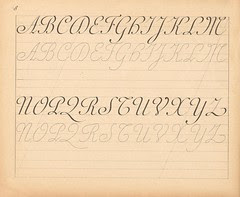 ABCDEFGHIJKLM
ABCDEFGHIJKLM
NOPQRSTUVXYZ
NOPQRSTUVXYZ